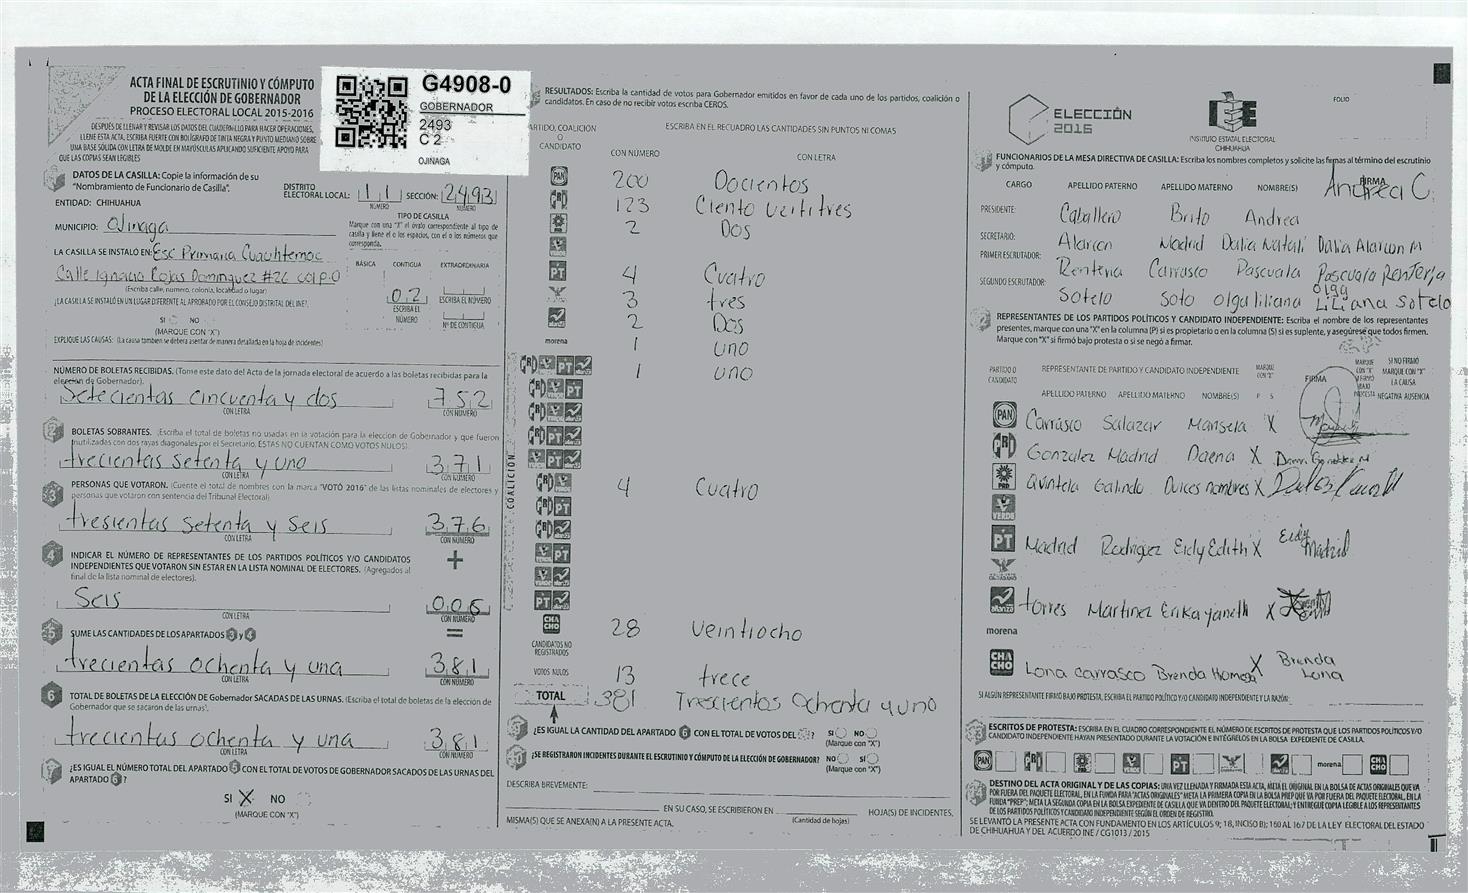 ACTA FINAL DE ESCRUTINIO Y CÓMPUTO
DE LA ELECCIÓN DE GOBERNADOR
PROCESO ELECTORAL LOCAL 2015-2016
DESPUÉS DE LLENAR Y REVISAR LOS DATOS DEL CUADERNILLO PARA HACER OPERACIONES,
LLENE ESTA ACTA. ESCRIBA FUERTE CON BOLÍGRAFO DE TINTA NEGRA Y PUNTO MEDIANO SOBRE
UNA BASE SÓLIDA CON LETRA DE MOLDE EN MAYÚSCULAS APLICANDO SUFICIENTE APOYO PARA
QUE LAS COPIAS SEAN LEGIBLES
G4908-0
GOBERNADOR
2493
C 2
OJINAGA
DATOS DE LA CASILLA: Copie la información de su
"Nombramiento de Funcionario de Casilla".
ENTIDAD: CHIHUAHUA
DISTRITO
ELECTORAL LOCAL: 11 SECCIÓN: 2493
NÚMERO NÚMERO
MUNICIPIO: Ojinaga
TIPO DE CASILLA
Marque con una "X" el óvalo correspondiente al tipo de
casilla y llene el o los espacios, con el o los números que
corresponda.
LA CASILLA SE INSTALÓ EN: Esc Primaria Cuauhtemoc
Calle Ignacio Rojas Dominguez #26
(Escriba calle, numero, colonia, localidad o lugar)
BÁSICA CONTIGUA EXTRAORDINARIA
02
ESCRIBA EL
NÚMERO
ESCRIBA EL NÚMERO
Nº DE CONTIGUA
¿LA CASILLA SE INSTALÓ EN UN LUGAR DIFERENTE AL APROBADO POR EL CONSEJO DISTRITAL DEL INE?
SI NO
(MARQUE CON "X")
EXPLIQUE LAS CAUSAS: (La causa tambien se debera asentar de manera detallada en la hoja de incidentes)
NÚMERO DE BOLETAS RECIBIDAS. (Tome este dato del Acta de la jornada electoral de acuerdo a las boletas recibidas para la
elección de Gobernador).
Setecientas cincuenta y dos 752
CON LETRA CON NÚMERO
2 BOLETAS SOBRANTES. (Escriba el total de boletas no usadas en la votación para la eleccion de Gobernador y que fueron
inutilizadas con dos rayas diagonales por el Secretario. ESTAS NO CUENTAN COMO VOTOS NULOS).
trecientas setenta y uno 371
CON LETRA CON NÚMERO
3 PERSONAS QUE VOTARON. (Cuente el total de nombres con la marca "VOTÓ 2016" de las listas nominales de electores y
personas que votaron con sentencia del Tribunal Electoral).
tresientas setenta y seis 376
CON LETRA CON NÚMERO
4 INDICAR EL NÚMERO DE REPRESENTANTES DE LOS PARTIDOS POLÍTICOS Y/O CANDIDATOS
INDEPENDIENTES QUE VOTARON SIN ESTAR EN LA LISTA NOMINAL DE ELECTORES. (Agregados al
final de la lista nominal de electores).
+
Seis 006
CON LETRA CON NÚMERO
5 SUME LAS CANTIDADES DE LOS APARTADOS 3 y 4 =
trecientas ochenta y una 381
CON LETRA CON NÚMERO
6 TOTAL DE BOLETAS DE LA ELECCIÓN DE Gobernador SACADAS DE LAS URNAS. (Escriba el total de boletas de la elección de
Gobernador que se sacaron de las urnas).
trecientas ochenta y una 381
CON LETRA CON NÚMERO
¿ES IGUAL EL NÚMERO TOTAL DEL APARTADO 5 CON EL TOTAL DE VOTOS DE GOBERNADOR SACADOS DE LAS URNAS DEL
APARTADO 6?
SI X NO
(MARQUE CON "X")
RESULTADOS: Escriba la cantidad de votos para Gobernador emitidos en favor de cada uno de los partidos, coalición o
candidatos. En caso de no recibir votos escriba CEROS.
PARTIDO, COALICIÓN
O
CANDIDATO
ESCRIBA EN EL RECUADRO LAS CANTIDADES SIN PUNTOS NI COMAS
CON NÚMERO CON LETRA
PAN 200 Docientos
PRI 123 Ciento veititres
PRD 2 Dos
VERDE
PT 4 Cuatro
3 tres
alianza 2 Dos
morena 1 uno
1 uno
COALICIÓN
4 Cuatro
CHACHO 28 veintiocho
CANDIDATOS NO
REGISTRADOS
VOTOS NULOS 13 trece
TOTAL 381 Trescientos Ochenta y uno
¿ES IGUAL LA CANTIDAD DEL APARTADO 6 CON EL TOTAL DE VOTOS DEL SI NO
(Marque con "X")
¿SE REGISTRARON INCIDENTES DURANTE EL ESCRUTINIO Y CÓMPUTO DE LA ELECCIÓN DE GOBERNADOR? NO SÍ
(Marque con "X")
DESCRIBA BREVEMENTE:
EN SU CASO, SE ESCRIBIERON EN HOJA(S) DE INCIDENTES,
(Cantidad de hojas)
MISMA(S) QUE SE ANEXA(N) A LA PRESENTE ACTA.
ELECCIÓN
2016
IEE
INSTITUTO ESTATAL ELECTORAL
CHIHUAHUA
FOLIO
FUNCIONARIOS DE LA MESA DIRECTIVA DE CASILLA: Escriba los nombres completos y solicite las firmas al término del escrutinio
y cómputo.
CARGO APELLIDO PATERNO APELLIDO MATERNO NOMBRE(S) FIRMA
PRESIDENTE: Caballero Brito Andrea Andrea C.
SECRETARIO: Alarcon Madrid Dalia Natali Dalia Alarcon M
PRIMER ESCRUTADOR: Renteria Carrasco Pascuala Pascuala Renteria
SEGUNDO ESCRUTADOR: Sotelo Soto Olga liliana Olga Liliana Sotelo
REPRESENTANTES DE LOS PARTIDOS POLÍTICOS Y CANDIDATO INDEPENDIENTE: Escriba el nombre de los representantes
presentes, marque con una "X" en la columna (P) si es propietario o en la columna (S) si es suplente, y asegúrese que todos firmen.
Marque con "X" si firmó bajo protesta o si se negó a firmar.
PARTIDO O
CANDIDATO
REPRESENTANTE DE PARTIDO Y CANDIDATO INDEPENDIENTE
APELLIDO PATERNO APELLIDO MATERNO NOMBRE(S) P S
FIRMA
SI NO FIRMÓ
MARQUE CON "X"
LA CAUSA
NEGATIVA AUSENCIA
PAN Carrasco Salazar Marisela X
PRI Gonzalez Madrid Daena X
PRD Quintela Galindo Dulces nombres X
VERDE
PT Madrid Rodriguez Eidy Edith X Eidy Madrid
alianza torres Martinez Erika yaneth X
morena
CHACHO Lona Carrasco Brenda X Brenda Lona
SI ALGÚN REPRESENTANTE FIRMÓ BAJO PROTESTA, ESCRIBA EL PARTIDO POLÍTICO Y/O CANDIDATO INDEPENDIENTE Y LA RAZÓN:
ESCRITOS DE PROTESTA: ESCRIBA EN EL CUADRO CORRESPONDIENTE EL NÚMERO DE ESCRITOS DE PROTESTA QUE LOS PARTIDOS POLÍTICOS Y/O
CANDIDATO INDEPENDIENTE HAYAN PRESENTADO DURANTE LA VOTACIÓN E INTÉGRELOS EN LA BOLSA EXPEDIENTE DE CASILLA.
PAN PRI PRD VERDE PT alianza morena CHACHO
DESTINO DEL ACTA ORIGINAL Y DE LAS COPIAS: UNA VEZ LLENADA Y FIRMADA ESTA ACTA, META EL ORIGINAL EN LA BOLSA DE ACTAS ORIGINALES QUE VA
POR FUERA DEL PAQUETE ELECTORAL, EN LA FUNDA PARA "ACTAS ORIGINALES" META LA PRIMERA COPIA EN LA BOLSA PREP QUE VA POR FUERA DEL PAQUETE ELECTORAL, EN LA
FUNDA "PREP"; META LA SEGUNDA COPIA EN LA BOLSA EXPEDIENTE DE CASILLA QUE VA DENTRO DEL PAQUETE ELECTORAL; Y ENTREGUE COPIA LEGIBLE A LOS REPRESENTANTES
DE LOS PARTIDOS POLÍTICOS Y CANDIDATO INDEPENDIENTE SEGÚN EL ORDEN DE REGISTRO.
SE LEVANTÓ LA PRESENTE ACTA CON FUNDAMENTO EN LOS ARTÍCULOS 9; 18, INCISO B); 160 AL 167 DE LA LEY ELECTORAL DEL ESTADO
DE CHIHUAHUA Y DEL ACUERDO INE / CG1013 / 2015